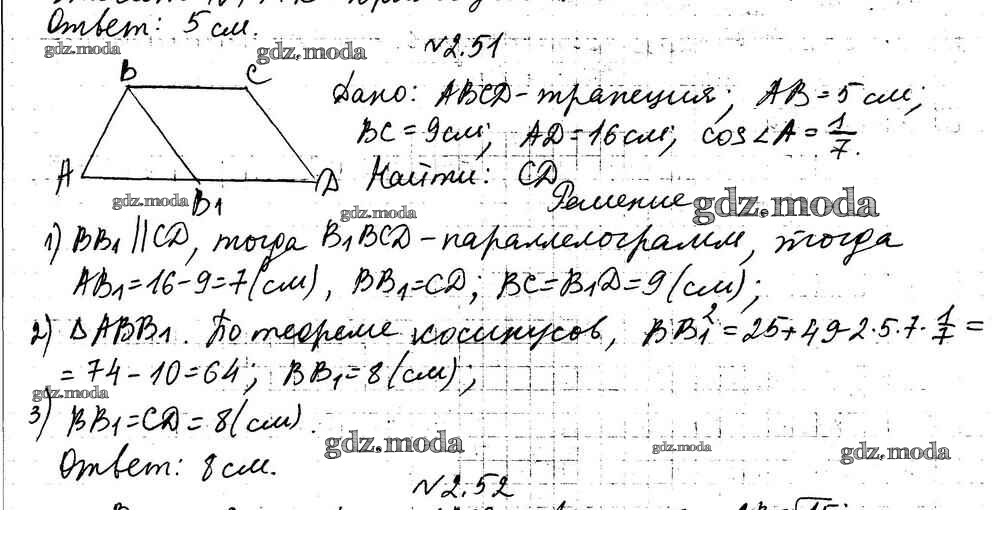 Ответ: 5 см.
gdz.moda
gdz.moda
№2.51
B
C
A
B1
D
gdz.moda
Дано: ABCD-трапеция; AB=5 см;
BC=9см; AD=16см; cos∠A=1/7.
Найти: CD
Решение
gdz.moda
gdz.moda
1) BB1||CD, тогда B1BCD-параллелограмм, тогда
AB1=16-9=7(см), BB1=CD; BC=B1D=9(см);
2) ΔABB1. По теореме косинусов, BB1²=25+49-2·5·7·1/7=
=74-10=64; BB1=8(см);
gdz.moda
3) BB1=CD=8(см).
gdz.moda
gdz.moda
gdz.moda
Ответ: 8см.
№2.52